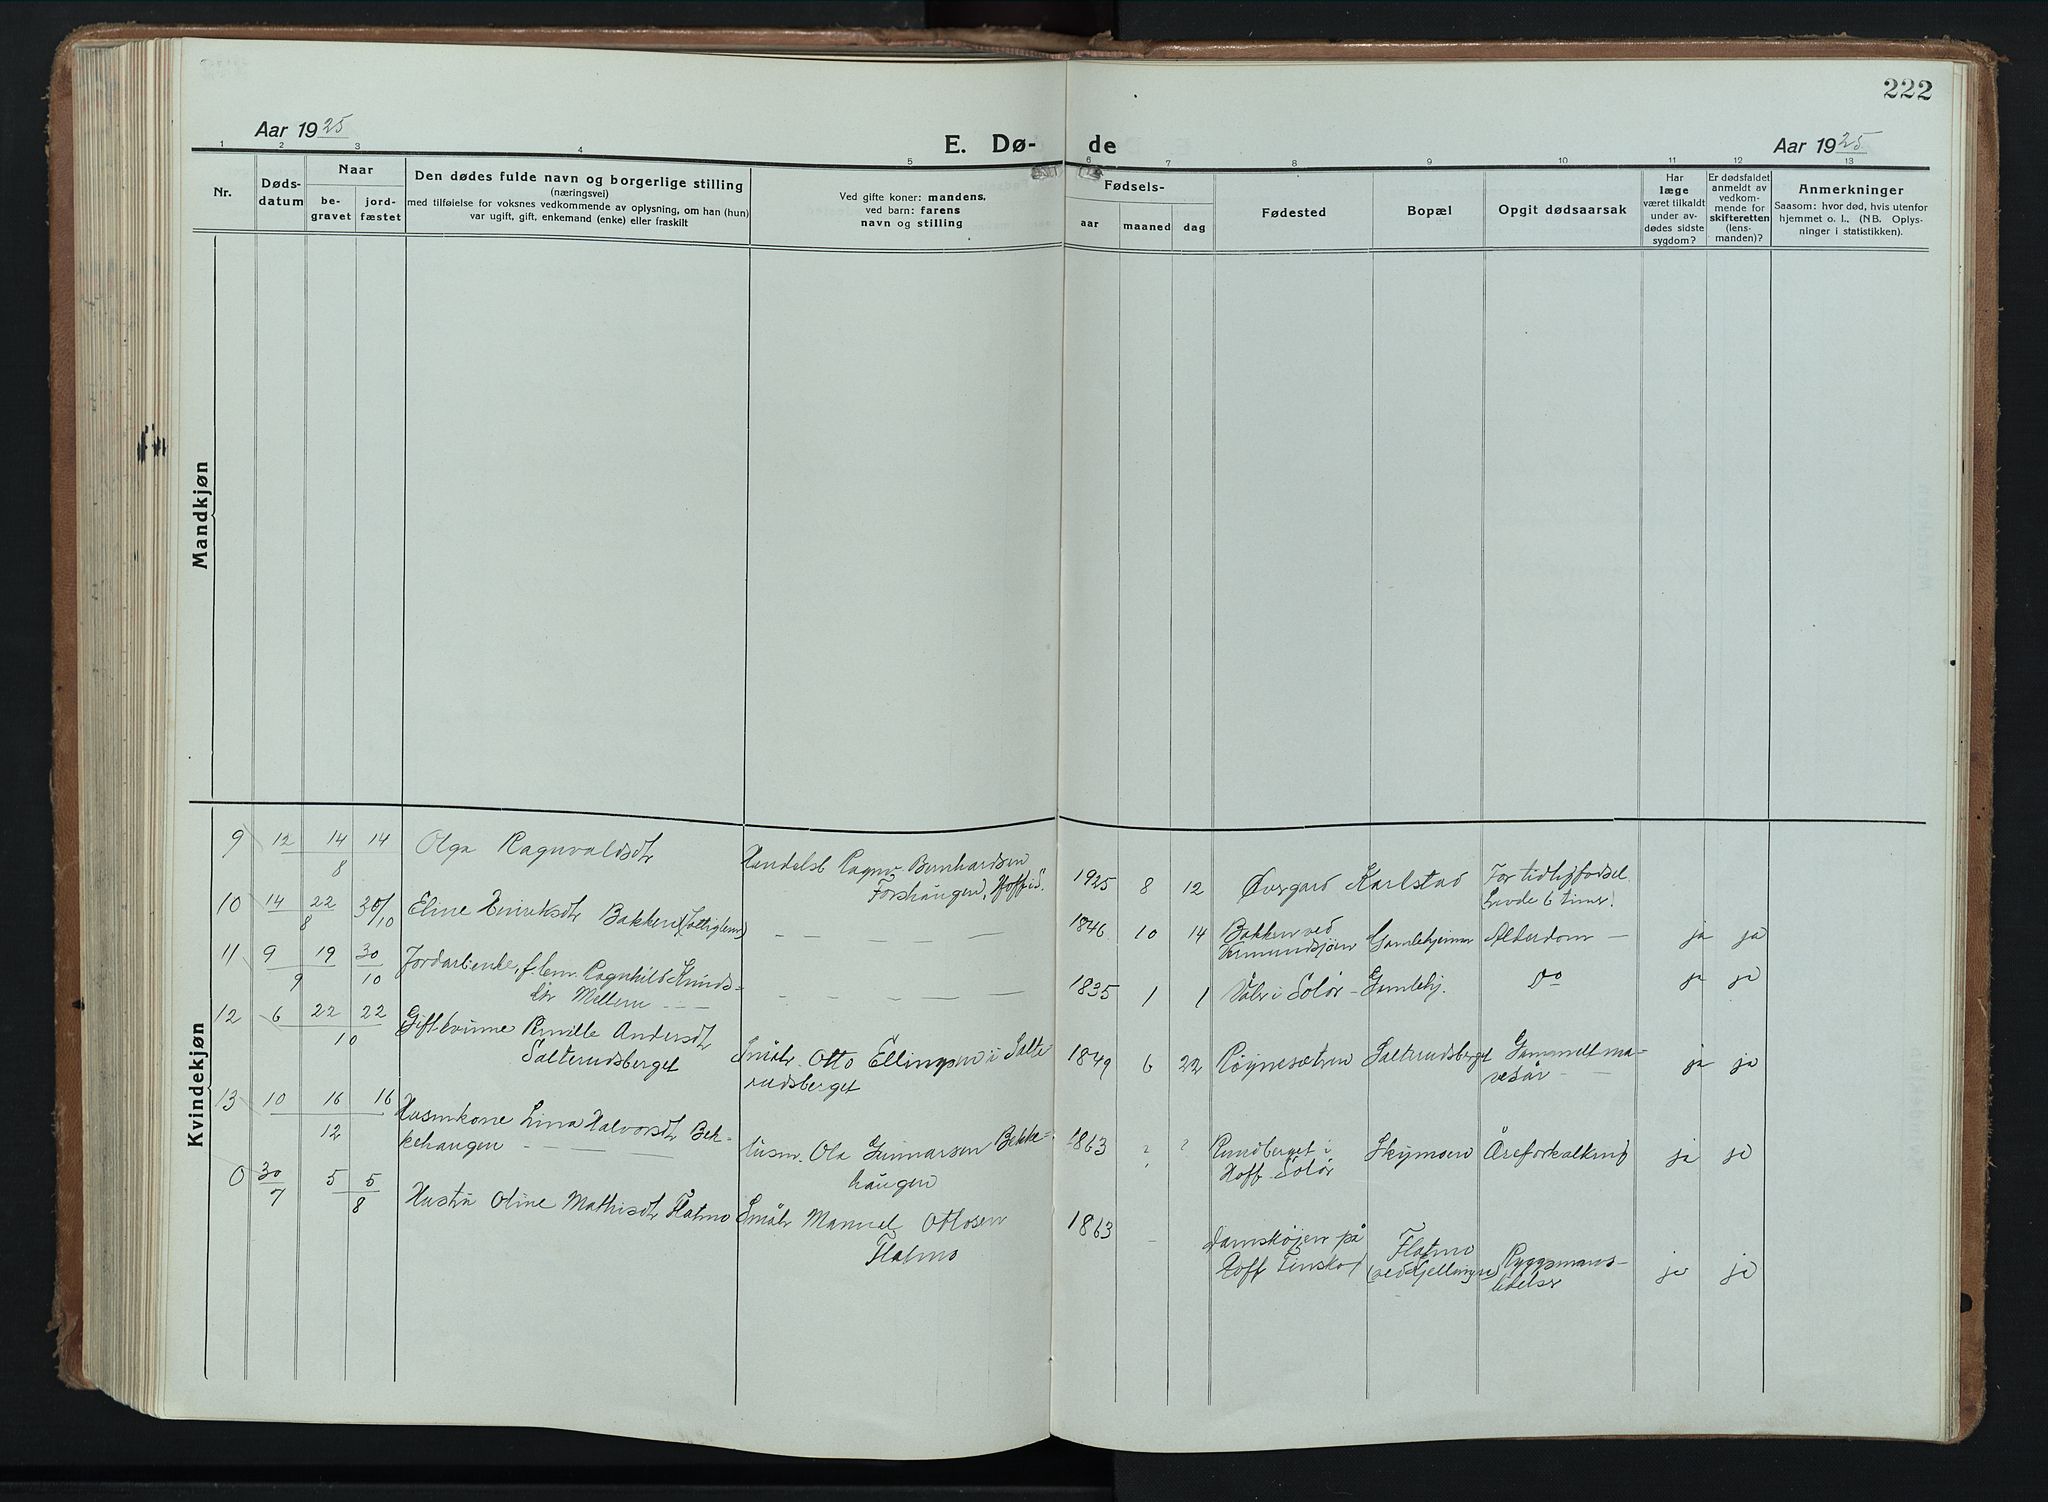 222
Aar 1925
E. Dø-
de
Aar 1925
1 2 3 4 5 6 7 8 9 10 11 12 13
Nr.
Døds-
datum
Naar
be-
gravet
jord-
fæstet
Den dødes fulde navn og borgerlige stilling
(næringsvei)
med tilføielse for voksnes vedkommende av oplysning, om han (hun)
var ugift, gift, enkemand (enke) eller fraskilt
Ved gifte koner: mandens,
ved barn: farens
navn og stilling
Fødsels-
aar maaned dag
Fødested
Bopæl
Opgit dødsaarsak
Har
læge
været tilkaldt
under av-
dødes sidste
sygdom?
Er dødsfaldet
anmeldt av
vedkom-
mende for
skifteretten
(lens-
manden)?
Anmerkninger
Saasom: hvor død, hvis utenfor
hjemmet o. l., (NB. Oplys-
ninger i statistikken).
Mandkjøn
Kvindekjøn
9 12 14 14
8
Olga Ragnvaldsdtr
Ragnv Bernhardsen
Forshaugen, Hoff i S.
1925 8 12 Øvergard Karlstad For tidlig fødsel.
Levde 6 timer!
10 14 22 30/10
8
Eline Henriksdtr
Bakken
— — — — —
1846 10 14 Bakken ved
Vermundsjøen Gamlehjemmet Alderdom — ja ja
11 9 19 30
9 10
Jordarb.enke, f. lem. Ragnhild Knuds-
dtr Mellem — —
— — — — —
1835 1 1 Våler i Solør — Gamlehj. Do ja ja
12 6 22 22
10
Gift kvinne Pernille Andersdtr
Salterudsberget
Småbr. Otto Ellingsen i Salte
rudsberget
1849 6 22 Røgnesætren Salterudsberget Gammelt ma-
vesår — ja ja
13 10 16 16
12
Husmkone Lina Halvorsdtr Bek-
kehaugen — — — —
Husm. Ola Gunnarsen Bekke-
haugen
1863 ? ? Rundberget i
Hoff Solør Skymoen Åreforkalkning ja ja
0 30 5 5
7 8
Hustru Oline Mathisdtr Flatmo
Småbr Manuel Ottosen
Flatmo
1863 — Damskøjen på
Hoff Finskog Flatmo
(ved Kjellingen) Ryggsmans-
lidelser ja ja